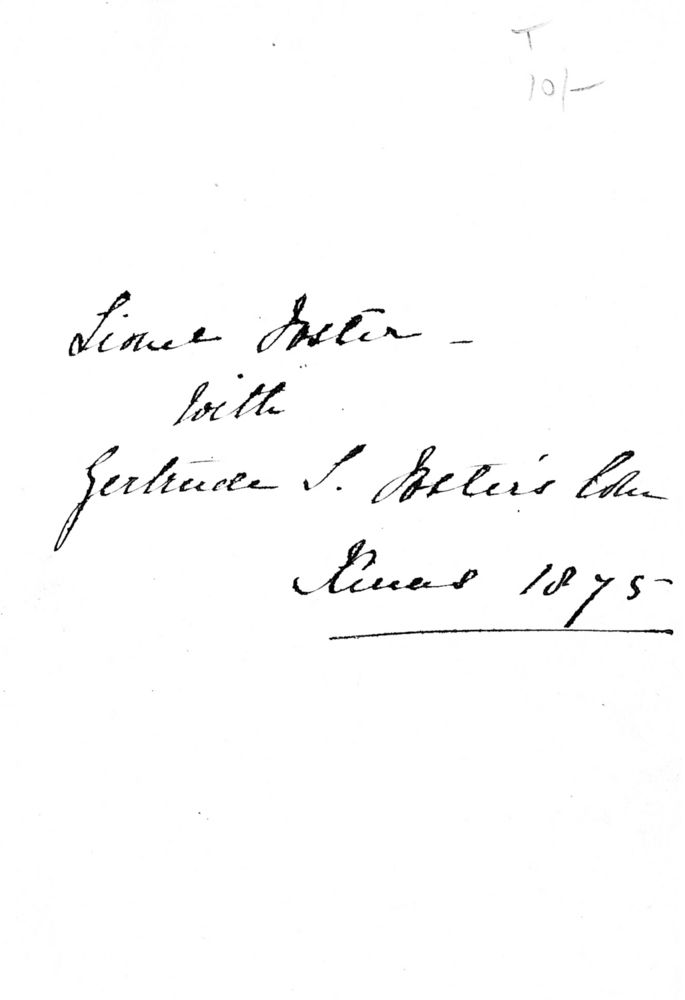 T
10/-
Lionel Foster -
With
Gertrude S. Foster's
Xmas 1875